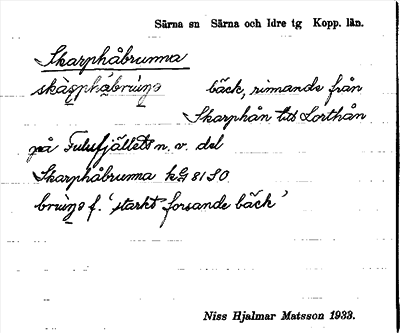 Särna sn Särna och Idre tg Kopp. län.
Skarphåbrunna
bäck, rinnande från
Skarphån till Lorthån
på Fulufjällets n. v. del
Skarphåbrunna
f. 'starkt forsande bäck'
Niss Hjalmar Matsson 1933.